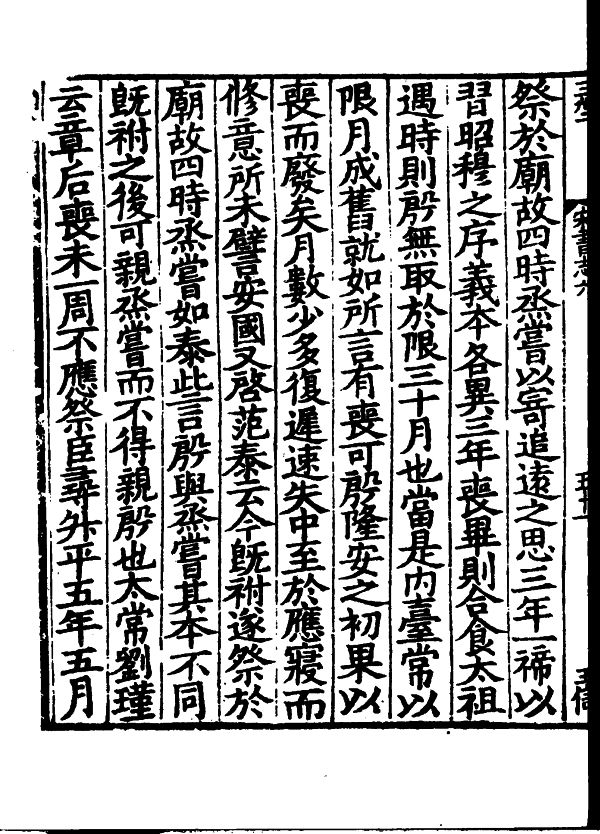 祭於廟故四時烝嘗以寄追遠之思三年一禘以
習昭穆之序義本各異三年喪畢則合食太祖
遇時則殷無取於限三十月也當是内臺常以
限月成舊就如所言有喪可殷隆安之初果以
喪而廢矣月數少多復遲速失中至於應寢而
修意所未譬安國又啓范泰云今既祔遂祭於
廟故四時烝嘗如泰此言殷與烝嘗其本不同
既祔之後可親烝嘗而不得親殷也太常劉瑾
云章后喪未一周不應祭臣尋升平五年五月